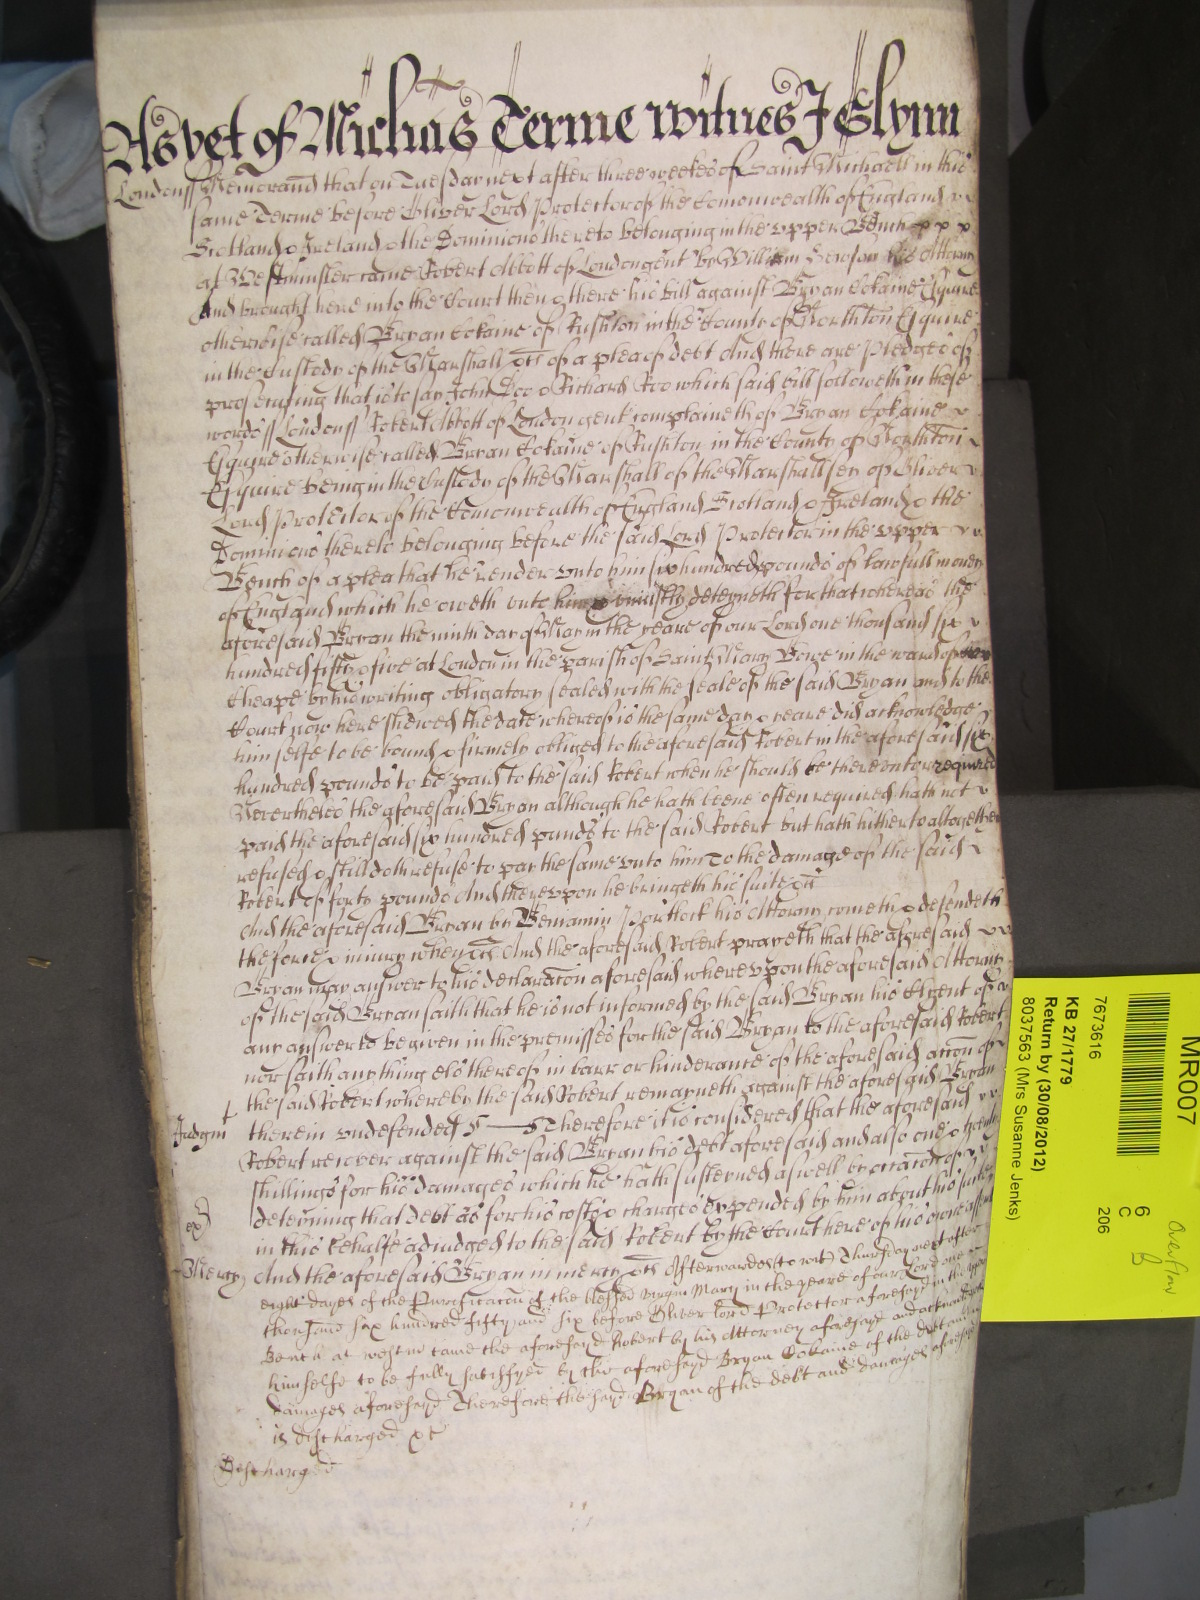 As yet of Michās Terme Witnes J Glynn
Londonss Memorand that on Tuesday next after three weekes of Saint Michaell in this
same Terme before Oliver Lord Protector of the Comonwealth of England
Scotland & Ireland & the Dominions thereto belonging in the upper Bench
at Westminster came Robert Abbott of London gent by William his Attorny
And brought here into the Court then & there his bill against Bryan Cokaine Esquire
otherwise called Bryan Cokaine of Rushton in the County of Northton Esquire
in the custody of the Marshall &c of a plea of debt And there are pledges of
prosecuting that is to say John Doo & Richard Roo which said bill followeth in these
words ss Londonss Robert Abbott of London gent complaineth of Bryan Cokaine
Esquire otherwise called Bryan Cokaine of Rushton in the County of Northton
Esquire being in the Custody of the Marshall of the Marshallsey of Oliver
Lord Protector of the Comonwealth of England Scotland & Ireland & the
Dominions thereto belonging before the said Lord Protector in the upper
Bench of a plea that he render unto him six hundred pounds of lawfull money
of England which he oweth unto him & uniustly deteyneth For that whereas the
aforesaid Bryan the ninth day of May in the yeare of our Lord one thousand six
hundred fifty & five at London in the parish of Saint Mary Bowe in the ward of
Cheape by his writing obligatory sealed with the seale of the said Bryan and to the
Court now here shewed the date whereof is the same day & yeare did acknowledge
himselfe to be bound & firmely obliged to the aforesaid Robert in the aforesaid six
hundred pounds to be paid to the said Robert when he should be thereunto required
Neverthelesse the aforesaid Bryan although he hath beene often required hath not
paid the aforesaid six hundred pounds to the said Robert but hath hitherto altogether
refused & still doth refuse to pay the same unto him To the damage of the said
Robert of forty pounds And thereupon he bringeth his suite &c
And the aforesaid Bryan by Beniamin Portlock his Attorny cometh & defendeth
the force & iniury when &c And the aforesaid Robert prayeth that the aforesaid
Bryan may answer to his declaracon aforesaid whereupon the aforesaid Attorny
of the said Bryan saith that he is not informed by the said Bryan his Clyent of
any answer to be given in the premisses for the said Bryan to the aforesaid Robert
nor saith any thing els thereof in barr or hinderance of the aforesaid accon of
the said Robert whereby the said Robert remayneth against the aforesaid Bryan
Judgmt therein undefended Therefore it is considered that the aforesaid
Robert recover against the said Bryan his debt aforesaid and also one & twenty
shillings for his damages which he hath susteyned aswell by occacon of
deteyning that debt as for his costs & charges expended by him about his suite
in this behalfe adiudged to the said Robert by the Court here of his owne assent
Mercy And the aforesaid Bryan in mercy &c Afterwardes (to wit) Thursday next after
eight dayes of the Purificacon of the blessed Virgin Mary in the yeare of our Lord one
thousand six hundred fifty and six before Oliver lord Protector aforesayd in the upper
Bench at westm came the aforesayd Robert by his Attorney aforesayd and acknowledged
himselfe to be fully satisfyed by the aforesayd Bryan Cokaine of the debt and
damages aforesayd Therefore the sayd Bryan of the debt and damages aforesayd
is discharged &c
Discharged
MR007
6
C
206
Overflow
7673616
KB 27/1779
Return by (30/08/2012)
8037563 (Mrs Susanne Jenks)